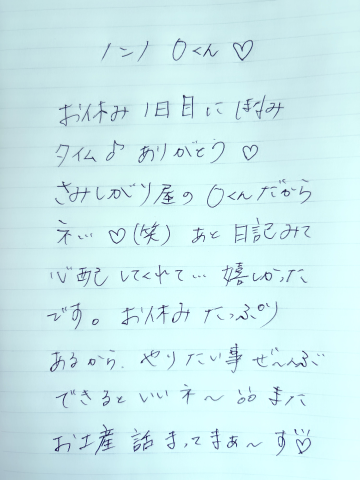 ノンノ Oくん♡
お休み 1日目に はなみ
タイム♪ ありがとう♡
さみしがり屋の Oくんだから
ネ… ♡(笑) あと 日記みて
心配してくれて… 嬉しかった
です。お休みたっぷり
あるから、やりたい事 ぜ〜んぶ
できるといいネ〜 また
お土産話まってまぁ〜す♡